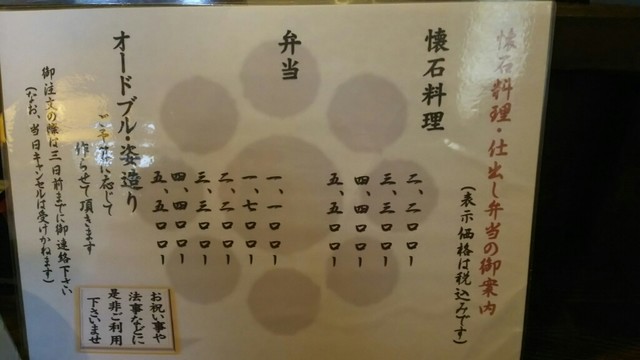 懐石料理・仕出し弁当の御案内
(表示価格は税込みです)
懐石料理
二、二〇〇ー
三、三〇〇ー
四、四〇〇ー
五、五〇〇ー
弁当
一、一〇〇ー
一、七〇〇ー
二、二〇〇ー
三、三〇〇ー
四、四〇〇ー
五、五〇〇ー
オードブル・姿造り
に応じて
作らせて頂きます
御注文の際は三日前までに御連絡下さい
(なお、当日キャンセルは受けかねます)
お祝い事や
法事などに
是非ご利用
下さいませ